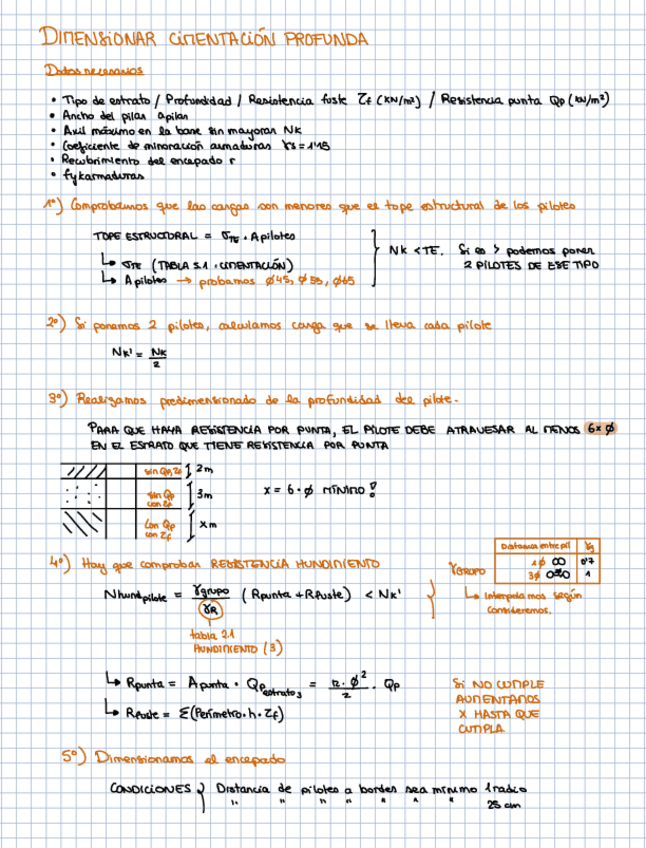 DIMENSIONAR CIMENTACIÓN PROFUNDA
Datos necesarios
• Tipo de estrato / Profundidad / Resistencia fuste τf (KN/m²) / Resistencia punta Qp (KN/m²)
• Ancho del pilar apilar
• Axil máximo en la base sin mayorar Nk
• Coeficiente de minoración armaduras γs = 1'15
• Recubrimiento del encepado r
• fyk armaduras
1º) Comprobamos que las cargas son menores que el tope estructural de los pilotes
TOPE ESTRUCTURAL = σTE · Apilotes
↳ σTE (TABLA 5.1 · CIMENTACIÓN)
↳ Apilotes → probamos ø45, ø55, ø65
Nk < TE. Si es > podemos poner
2 PILOTES DE ESE TIPO
2º) Si ponemos 2 pilotes, calculamos carga que se lleva cada pilote
Nk' = Nk / 2
3º) Realizamos predimensionado de la profundidad del pilote.
PARA QUE HAYA RESISTENCIA POR PUNTA, EL PILOTE DEBE ATRAVESAR AL MENOS 6xø
EN EL ESTRATO QUE TIENE RESISTENCIA POR PUNTA
sin Qp, τf 2m
sin Qp
con τf 3m
Con Qp
con τf Xm
x = 6 · ø MÍNIMO!
4º) Hay que comprobar RESISTENCIA HUNDIMIENTO
γGRUPO
Distancia entre pil γg
1ø 0'7
3ø 1
↳ Interpolamos según
consideremos.
Nhund pilote = γgrupo / γR (Rpunta + Rfuste) < Nk'
tabla 2.1
HUNDIMIENTO (3)
↳ Rpunta = Apunta · Qp estrato 3 = π · ø² / 2 · Qp
↳ Rfuste = Σ(Perímetro · h · τf)
Si NO CUMPLE
AUMENTAMOS
X HASTA QUE
CUMPLA
5º) Dimensionamos el encepado
CONDICIONES } Distancia de pilotes a bordes sea mínimo 1 radio
" " " " " " " 25 cm